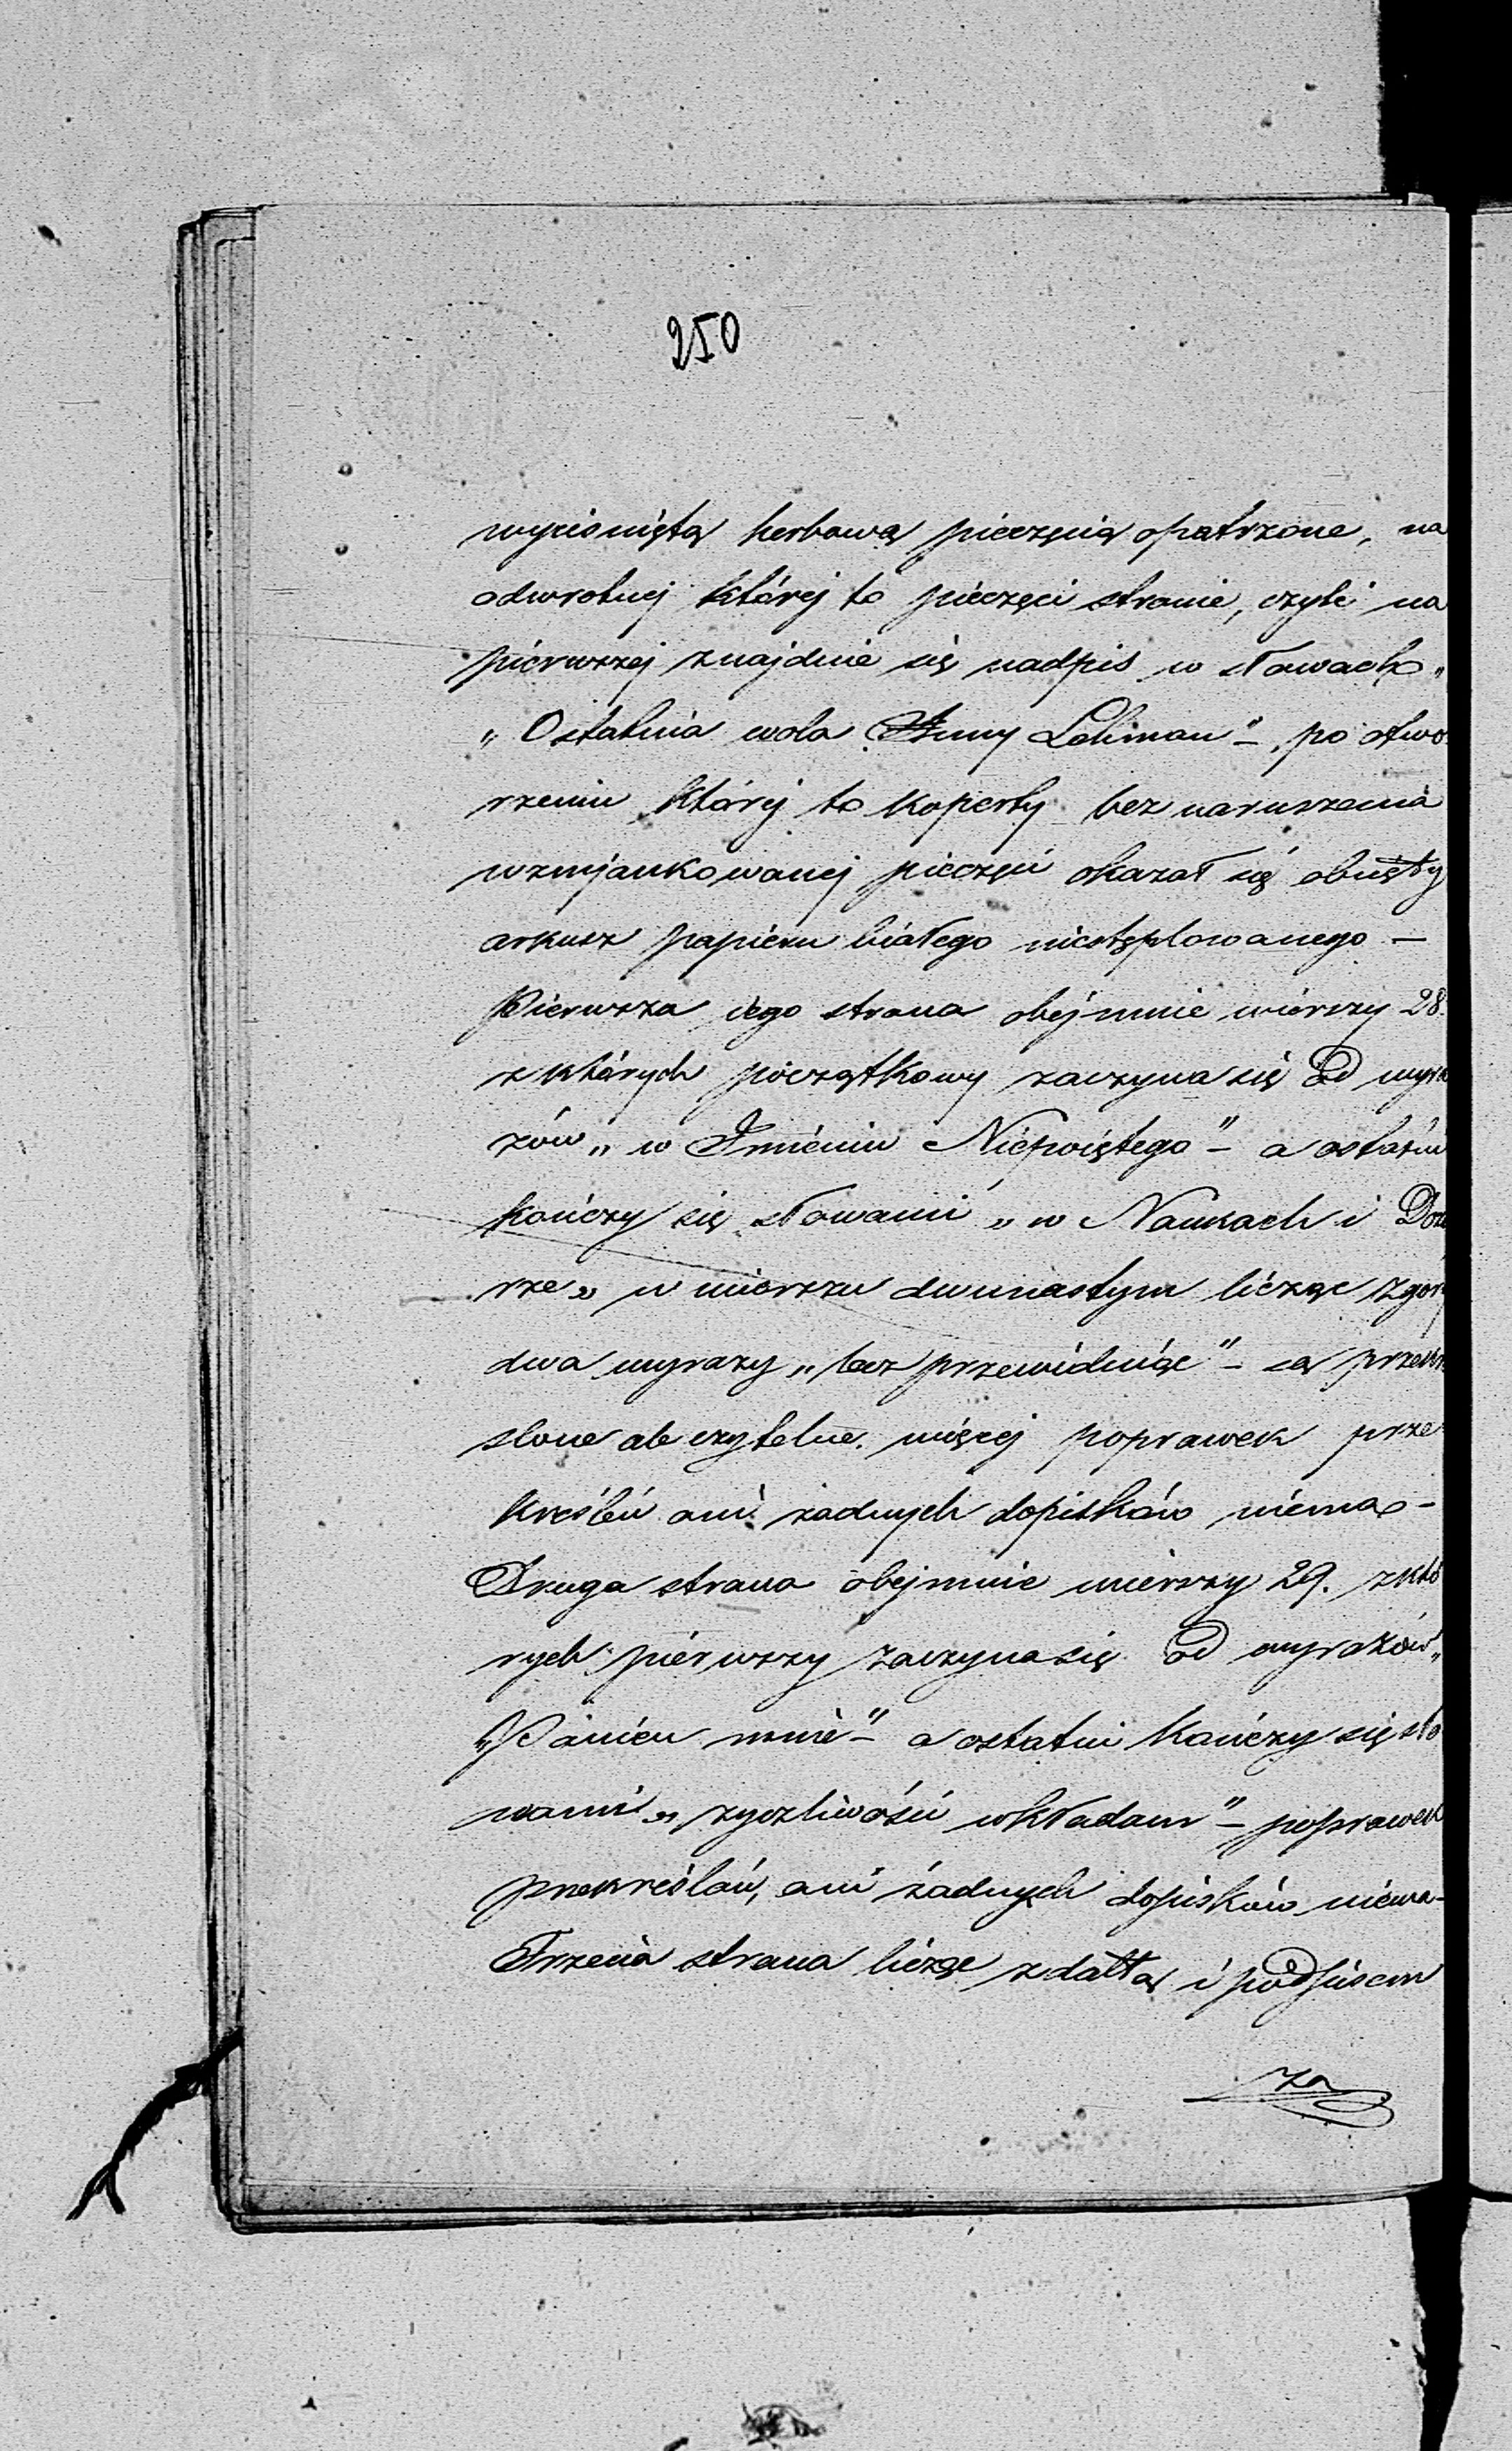 250
wyciśniętą herbową pieczęcią opatrzone, na
odwrotnej której to pieczęci stronie, czyli na
pierwszej znajduie się nadpis w słowach „
„Ostatnia wola Anny Lehman" – po otwo
rzeniu której to koperty bez naruszenia
wzmjankowanej pieczęci okazał się
arkusz papieru białego niestęplowanego –
Pierwsza iego strana obejmuie wierszy 28.
z których początkowy zaczyna się od wyra
zów „w Imieniu" – a ostatni
kończy się słowami „w Naukach i
rze„ w wierszu dwunastym licząc z gory
dwa wyrazy „bez przewiduiąc" – są przekre
slone ale czytelne. więcej poprawek prze
kreśleń ani żadnych dopisków niema –
Druga strana obejmuie wierszy 29. z któ
rych pierwszy zaczyna się od wyrazów „
„Winien mnie" – a ostatni kończy się sło
wami „zyczliwości wkładam" – poprawek
przekreślań, ani żadnych dopisków niema –
Trzecia strana licząc z dattą i podpisem
za